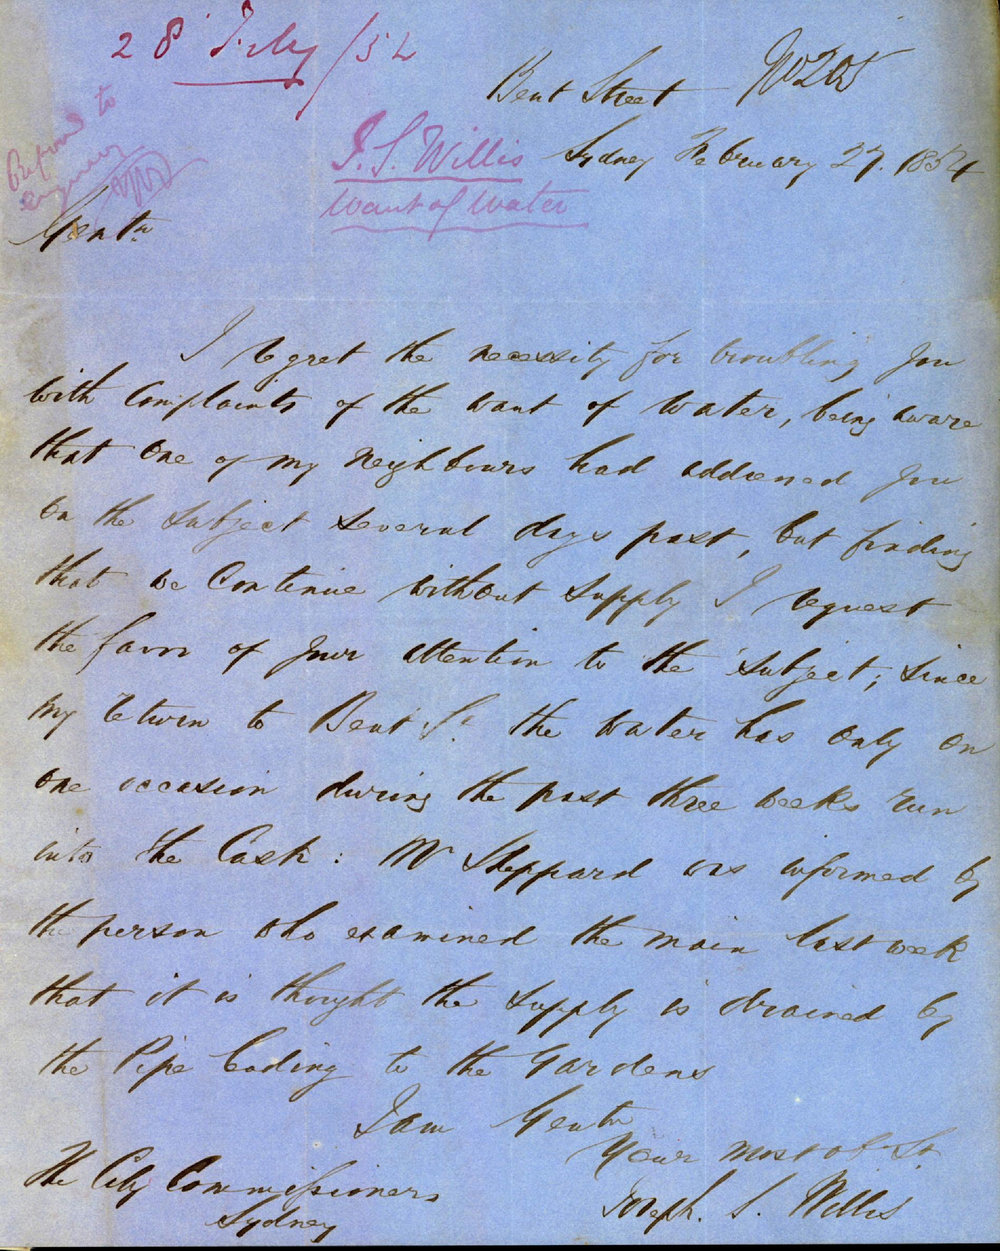 28 Feby/54
Bent Street No 205
J. S. Willis Sydney February 27. 1854
Want of Water
Refered to
Gentn
I regret the necessity for troubling you
with Complaints of the want of water, being aware
that one of my neighbours had addressed you
on the subject several days past, but finding
that we Continue without supply I request
the favor of your attention to the subject; since
my return to Bent St. the water has only on
one occasion during the past three weeks run
into the Cask: Mr Sheppard was informed by
the person who examined the main last week
that it is thought the supply is drained by
the Pipe leading to the Gardens
I am Gentn
Your most ob St
The City Commissioners
Joseph. S. Willis
Sydney